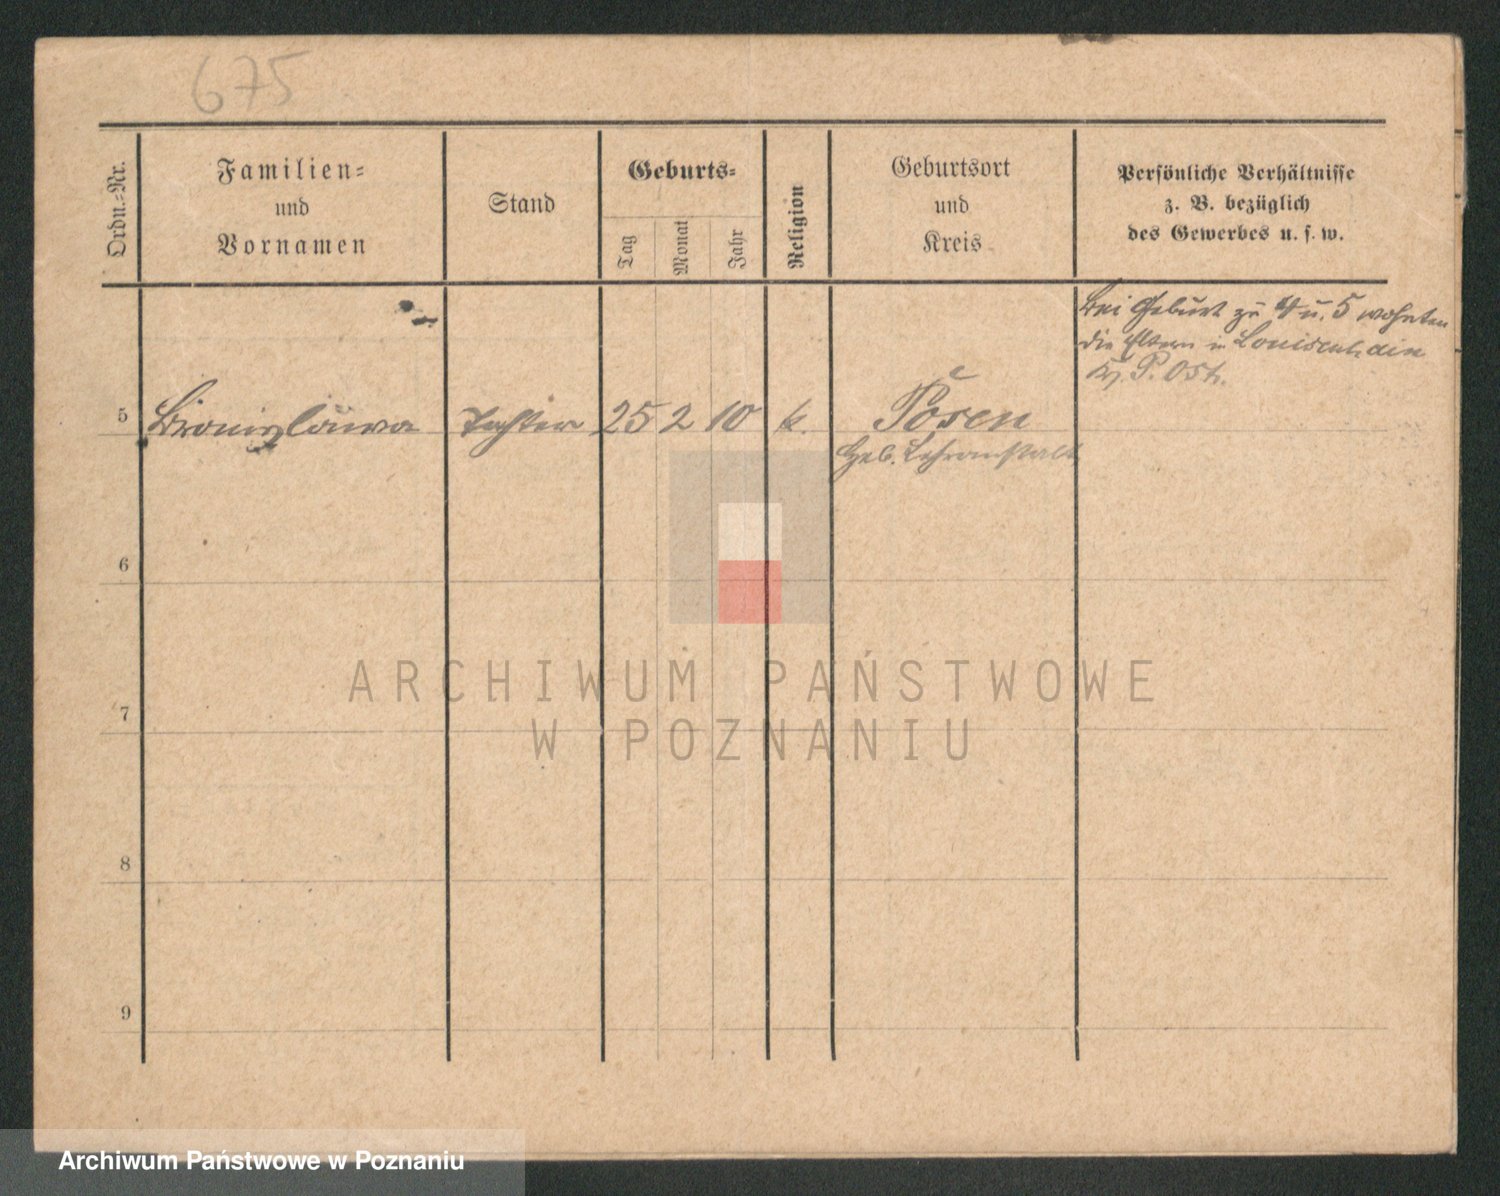 675
Ordn.-Nr.
Familien-
und
Vornamen
Stand
Geburts-
Tag
Monat
Jahr
Religion
Geburtsort
und
Kreis
Persönliche Verhältnisse
z. B. bezüglich
des Gewerbes u. s. w.
Bei Geburt zu 4 u. 5 wohnten
die Eltern in Louisenhain
Kr. P. Ost.
5 Bronislawa Tochter 25 2 10 k. Posen
Heb. Lehranstalt
6
7
8
9
ARCHIWUM PAŃSTWOWE
W POZNANIU
Archiwum Państwowe w Poznaniu